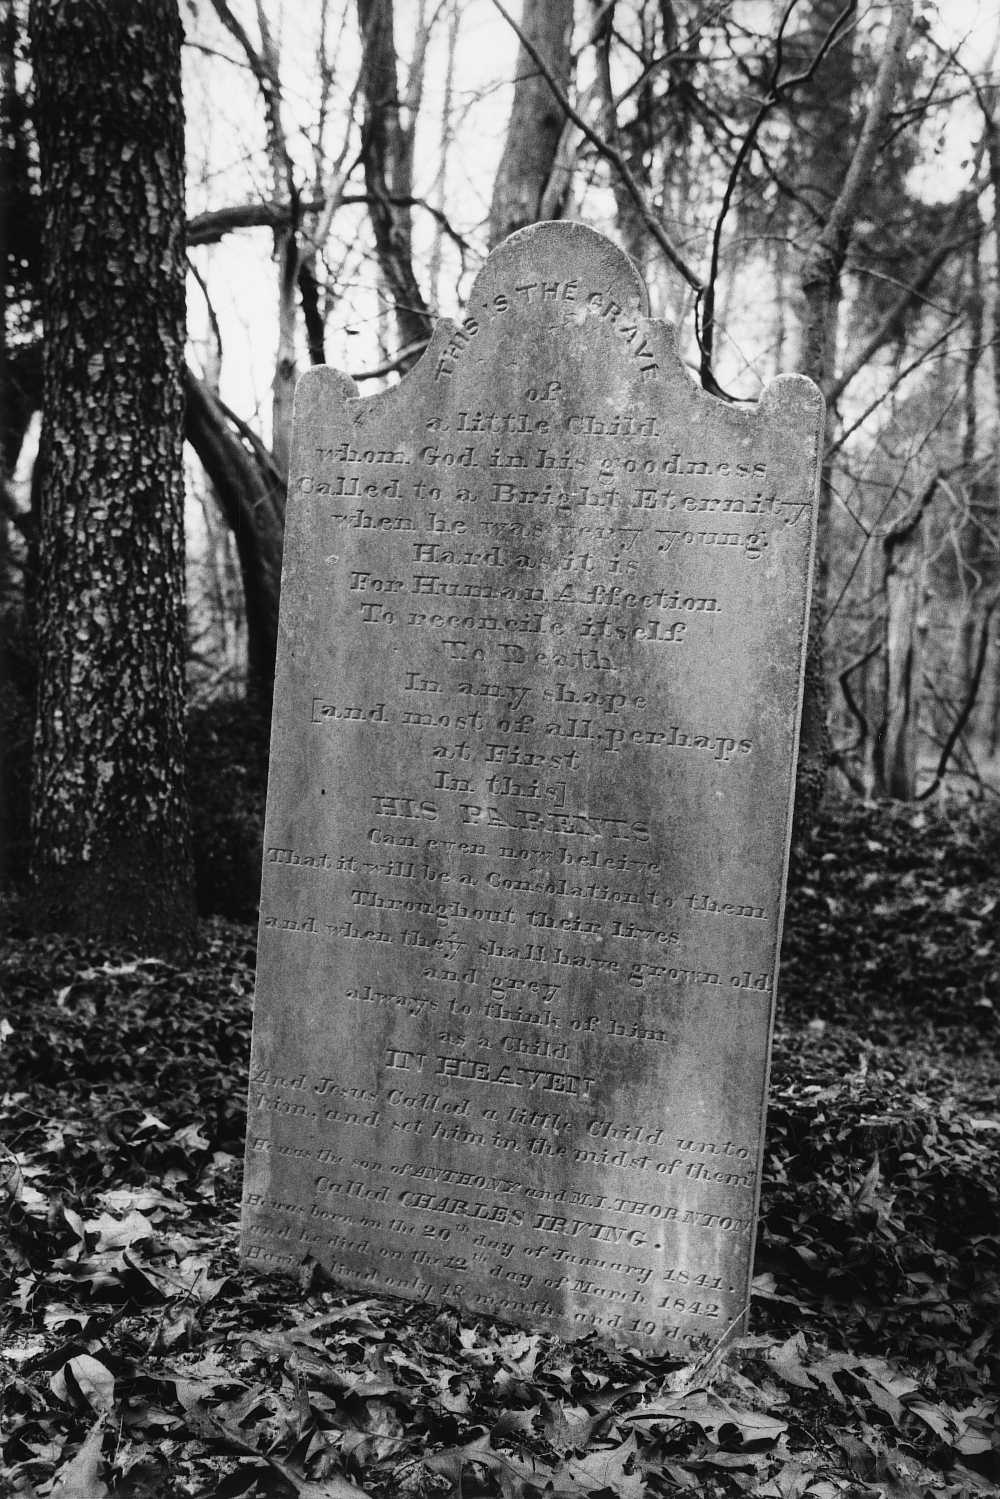 THIS 'S THE GRAVE
of
a little Child
whom God in his goodness
Called to a Bright Eternity
when he was very young;
Hard as it is
For Human Affection
To reconcile itself
To Death
In any shape
[and most of all, perhaps
at First
In this]
HIS PARENTS
Can even now beleive
That it will be a Consolation to them
Throughout their lives
and when they shall have grown old
and grey
always to think of him
as a Child
IN HEAVEN
And Jesus Called a little Child unto
him, and set him in the midst of them"
He was the son of ANTHONY and M.I. THORNTON
Called CHARLES IRVING.
He was born on the 20th day of January 1841.
and he died on the 12th day of March 1842.
Having lived only 12 months and 19 days